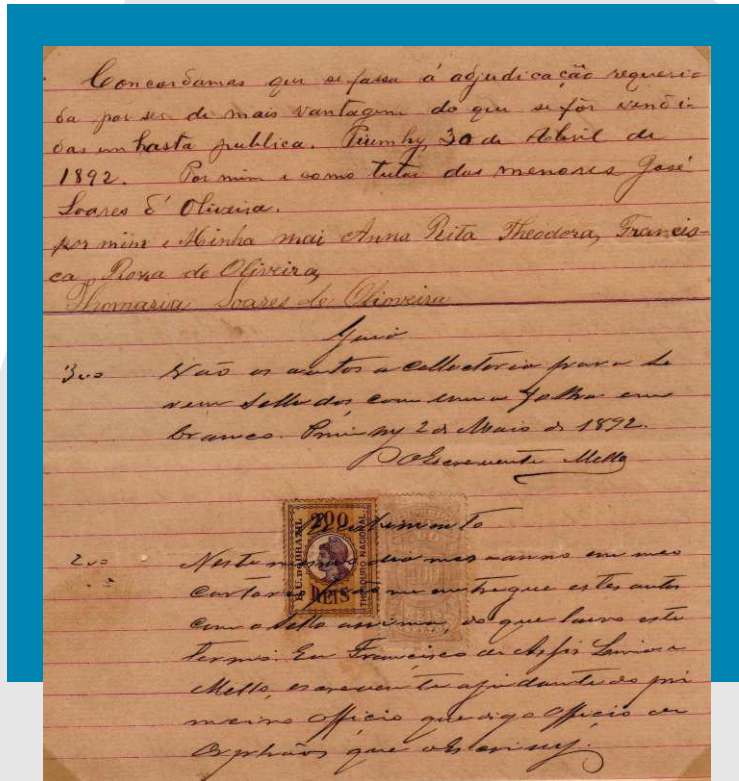 Concordamas que se fassa á adjudicacão requeri-
da por ser de mais vantagem do que se fôr vendi-
das em hasta publica. Piumhy 30 de Abril de
1892. Por mim e como tutor dos menores José
Soares d'Oliveira.
por mim e Minha mai Anna Rita Theodora, Francis-
ca Roza de Oliveira,
Thomazia Soares de Olioveira
300 Vão os autos a collectoria para se
rem sellados com uma folha em
branco. 2 de Maio de 1892.
O Escrevente Mello
200
E.U. DO BRAZIL
THESOURO NACIONAL
REIS
Recebimento
200 Neste mesmo dia mes e anno em meo
cartorio me entregue estes autos
com o sello assima, do que lavro este
termo. Eu Francisco de Assis
Mello, escrevente ajudante do pri
meiro officio que digo Officio de
Orphãos que o escrevy.